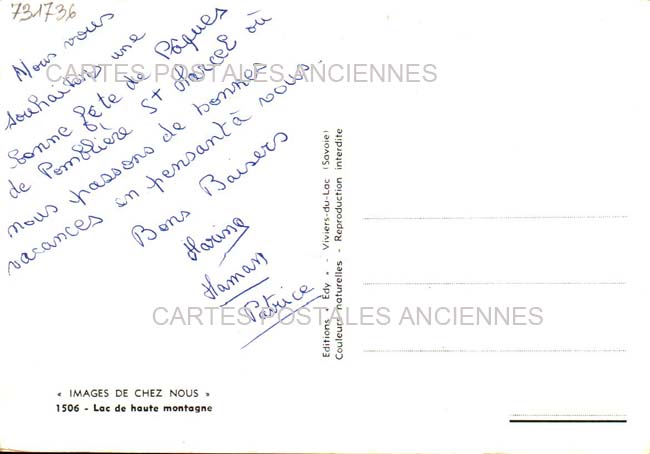 731736
Nous vous
souhaitons une
bonne fête de Pâques
de Pomblière St Marcel où
nous passons de bonnes
vacances en pensant à vous.
Bons Baisers
Marine
Maman
Patrice
CARTES POSTALES ANCIENNES
CARTES POSTALES ANCIENNES
Editions « Edy » - Viviers-du-Lac (Savoie)
Couleurs naturelles - Reproduction interdite
« IMAGES DE CHEZ NOUS »
1506 - Lac de haute montagne